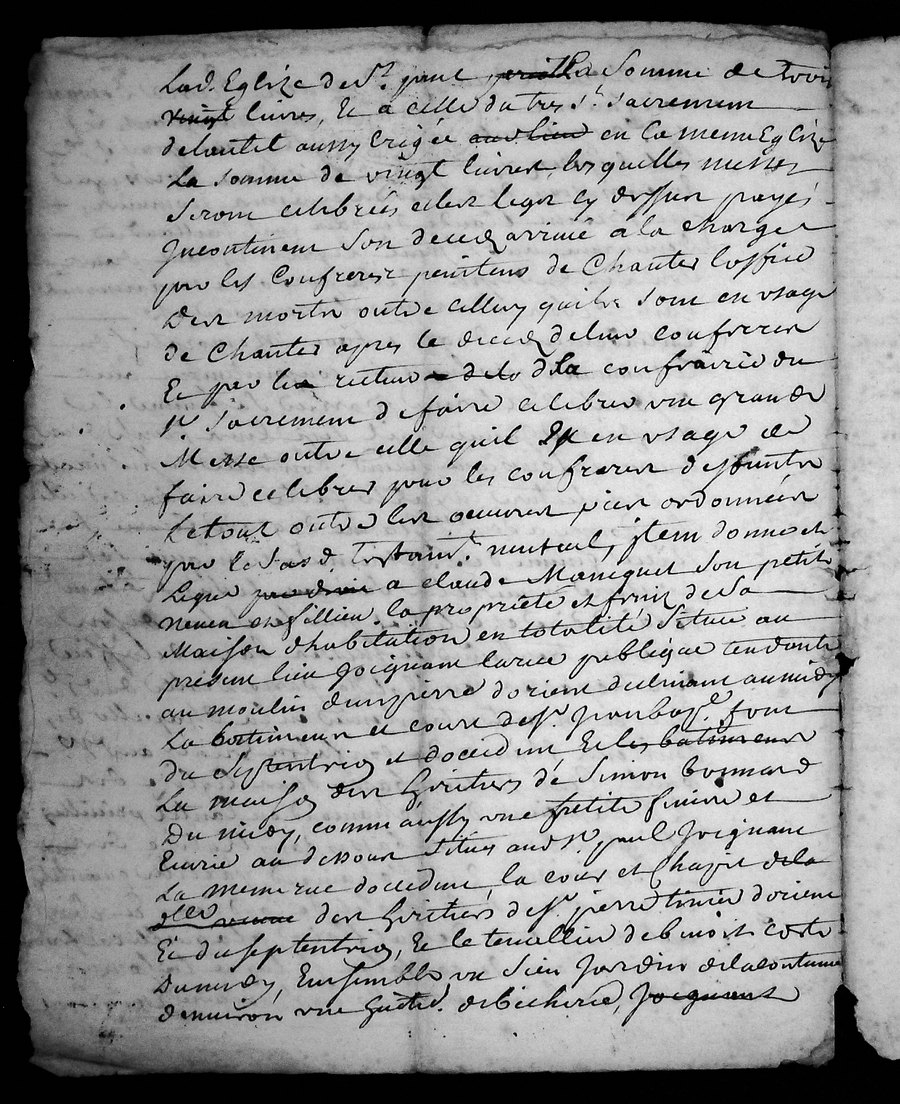 Lad. Eglize de St. paul la Somme de trois
vingt livres, Et a celle du tres St. Sacrement
de lautel aussy Erigée au lieu en la meme Eglize
La somme de vingt livres, lesquelles messes
Seront celebrées et les legas cy dessus payés
Incontinent son deced arrivé a la charge
par les Confreres penitens de Chanter loffice
Des morts outre celluy quils sont en usage
de Chanter apres le deced de leurs confreres
Et par les recteur de lad. confrairie du
St. Sacrement de faire celebrer une grande
Messe outre celle quil est en usage de
faire celebrer pour les confreres defuntz
Le tout outre les oeuvres pies ordonnées
par le Susd. Testamt. mutuel, Item donne et
Legue a claude Maniquet Son petit
Neveu et fillieu la propriete et fruits de Sa
Maison dhabitation en totalité Scituée au
present lieu Joignant la rue publique tendante
au moulin dun pierre dorient declinant au midy
La batiment et cour de Sr. Jean bapt. font
du Septentrion et doccident Et les batiments
La maison des heritiers de Simon bonnard
Du midy, comme aussy une petite et
Ecurie au dessous Situes aud St. paul Joignant
La meme rue doccident, la cour et Chapit de la
des heritiers de Sr. pierre dorient
Et du Septentrion, Et le tenallier de benoit coste
Du midy, Ensemble un Sien Jardin de la contenue
denviron une de bicherée, Joignant